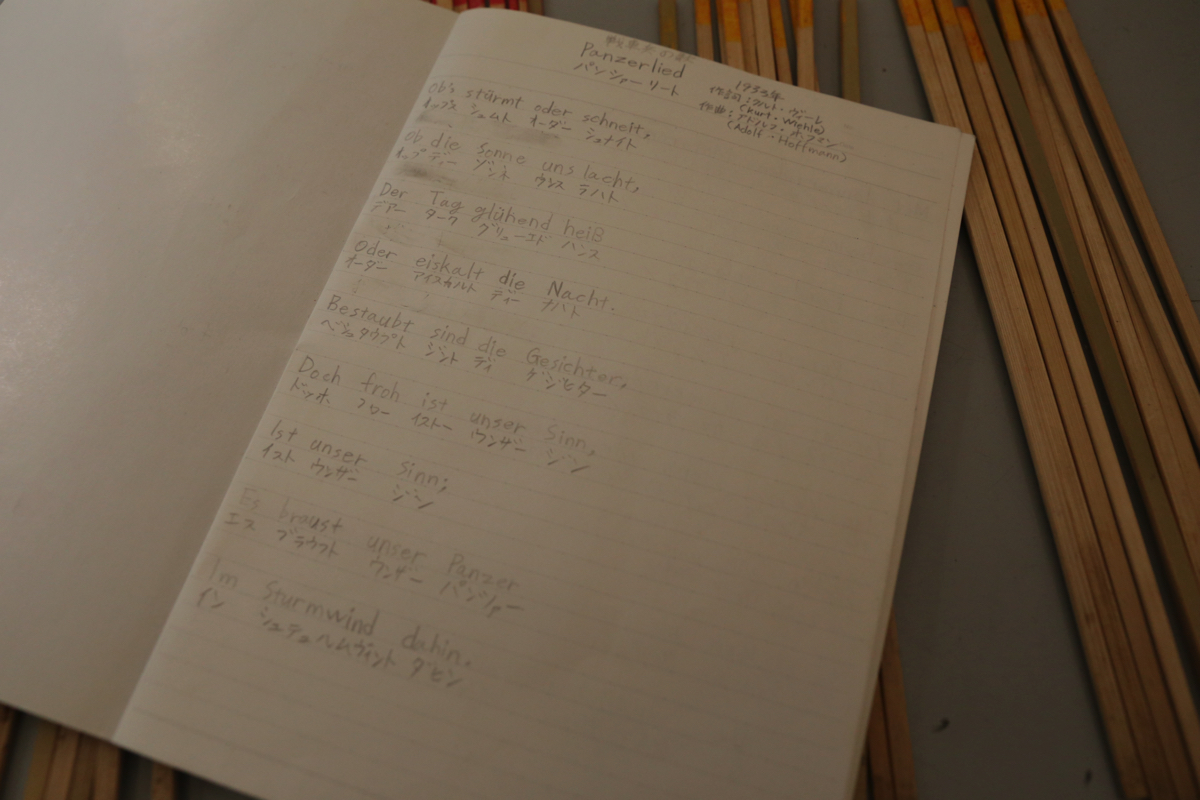 戦車兵の歌
Panzerlied
パンツァーリート
1933年
作詞:クルト・ヴィーレ
(Kurt・Wiehle)
作曲:アドルフ・ホフマン
(Adolf・Hoffmann)
Ob's stürmt oder schneit,
オップス シュムト オーダー シュナイト
Ob die Sonne uns lacht,
オップ ディー ゾンネ ウンス ラハト
Der Tag glühend heiß
デアー ターク グリューエド ハンス
Oder eiskalt die Nacht.
オーダー アイスカルト ディー ナハト
Bestaubt sind die Gesichter,
ベシュタウプト ジント ディ ゲジヒター
Doch froh ist unser Sinn,
ドッホ フロー イストー ウンザー ジン
Ist unser Sinn;
イスト ウンザー ジン
Es braust unser Panzer
エス ブラウスト ウンザー パンツァー
Im Sturmwind dahin.
イン シュテュルムヴィント ダヒン